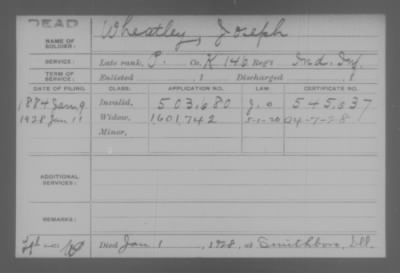 DEAD
NAME OF SOLDIER: Wheatley, Joseph
SERVICE: Late rank, P. Co. K 146 Reg't Ind. Inf.
TERM OF SERVICE: Enlisted , 1 Discharged , 1
DATE OF FILING. CLASS. APPLICATION NO. LAW. CERTIFICATE NO.
1884 Jan 9 Invalid, 503,680 G.L. 545,637
1928 Jan 11 Widow, 1,601,742 5-1-20 A-4-7-28
Minor,
ADDITIONAL SERVICES:
REMARKS:
Died Jan 1, 1928, at Smithboro, Ill.